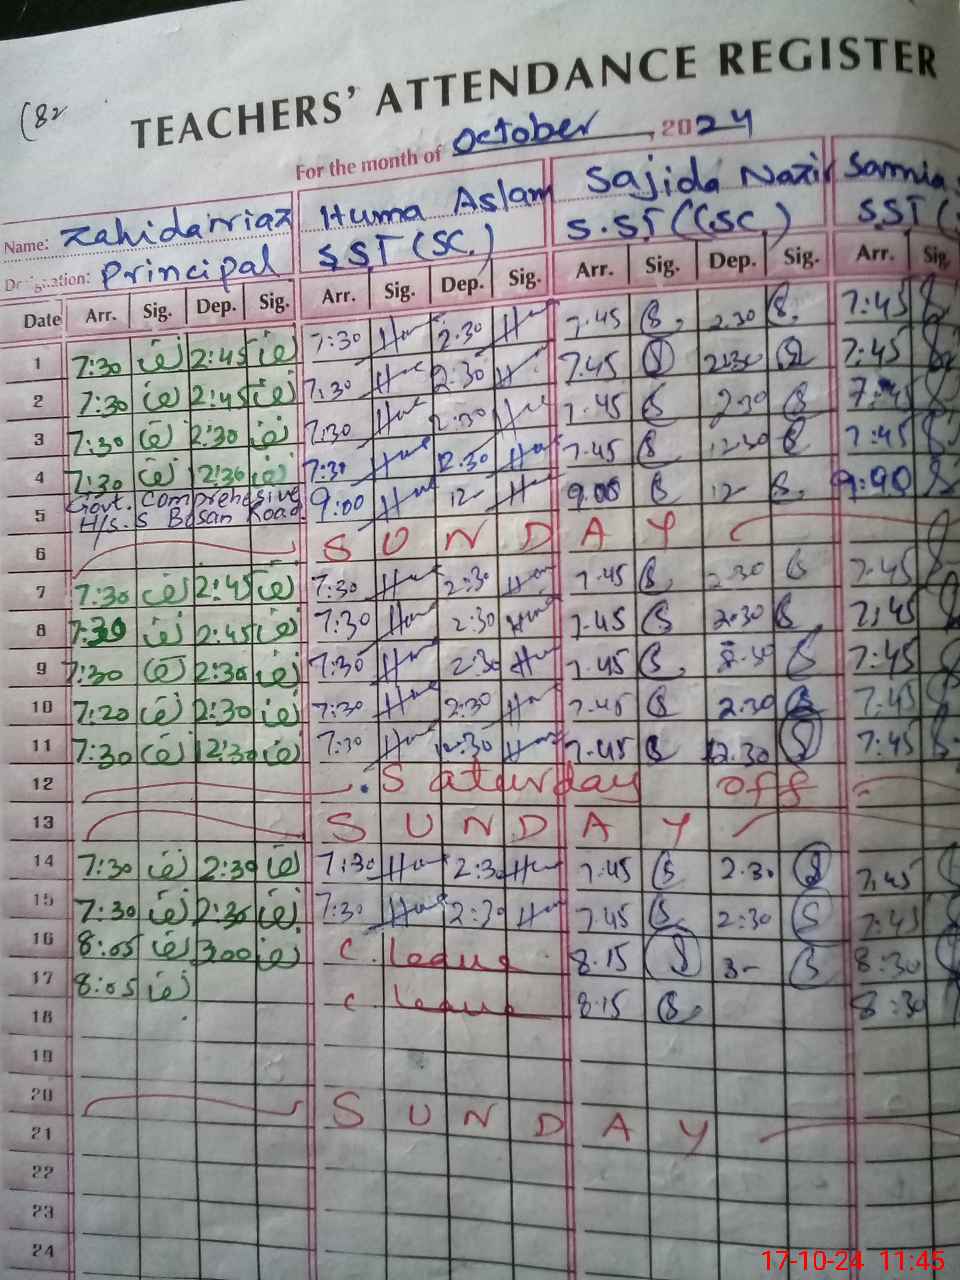 (82
TEACHERS' ATTENDANCE REGISTER
For the month of October, 2024
Name: Zahidarriaz Huma Aslam Sajida Nazir Samia
Designation: Principal S.S.T (SC.) S.ST (CSC.) SST (
Date Arr. Sig. Dep. Sig. Arr. Sig. Dep. Sig. Arr. Sig. Dep. Sig. Arr. Sig.
1 7:30 2:45 7:30 2.30 7.45 2.30 7:45
2 7:30 2:45 7:30 2:30 7.45 2:30 7:45
3 7:30 2:30 7:30 2:30 7.45 2.30 7:45
4 7:30 12:30 7:30 12.30 7.45 12.30 7:45
5 Govt. Comprehesive 9:00 12- 9.00 12- 9:00
H/S.S Bosan Road
6 S U N D A Y
7 7:30 2:45 7:30 2:30 7.45 2.30 7.45
8 7:30 2:45 7:30 2:30 7.45 2.30 7:45
9 7:30 2:30 7:30 2:30 7.45 2.30 7:45
10 7:20 2:30 7:30 2:30 7.45 2.30 7:45
11 7:30 12:30 7:30 12:30 7.45 12.30 7:45
12 Saturday off
13 S U N D A Y
14 7:30 2:30 7:30 2:30 7.45 2.30 7:45
15 7:30 2:30 7:30 2:30 7.45 2:30 7:45
16 8:05 300 C. leave 8.15 3- 8:30
17 8:05 C leave 8.15 8:30
18
19
20 S U N D A Y
21
22
23
24
17-10-24 11:45